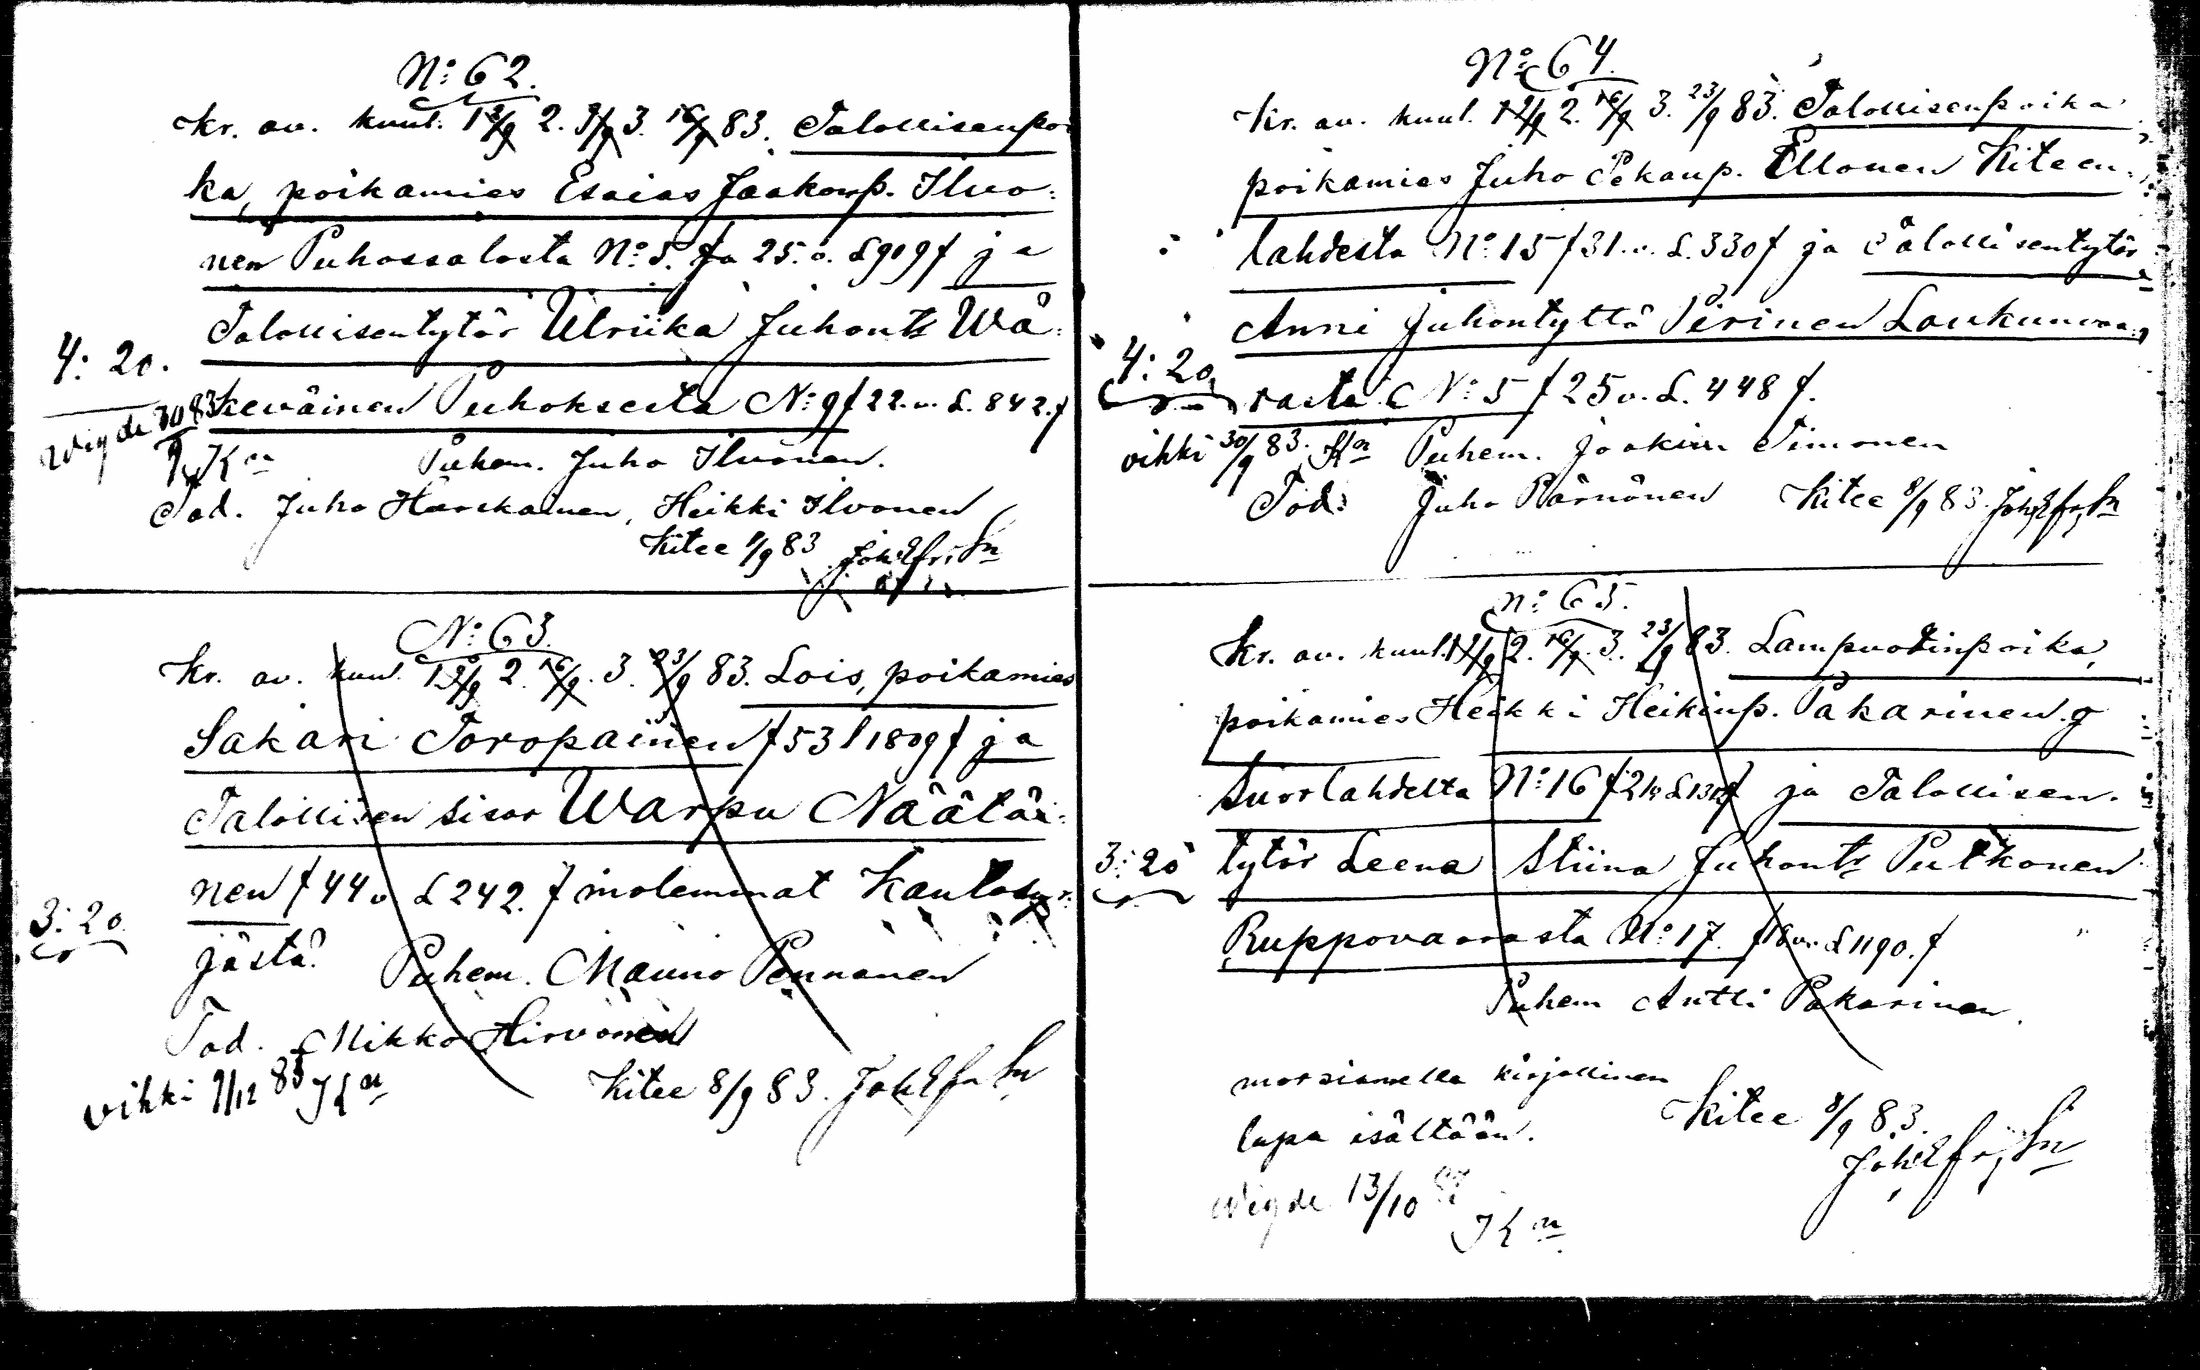 N:o 62.
Kr. av. kuul. 1 2/9 2. 9/9 3. 16/9 83. Talollisenpoi
ka, poikamies Esaias Jaakonp. Ilvo-
nen Puhossalosta N:o 5. 25. v. L 909 ja
Talollisentytär Ulriika Juhontr Wä-
4:20.
keväinen Puhoksesta N:o 9 22. v. L. 842.
Wigde 30/9 83 JKn
Puhem. Juho Ilvonen.
Tod. Juho Harskainen, Heikki Ilvonen
Kitee 1/9 83
N:o 63.
Kr. av. kuul. 1 9/9 2. 16/9. 3. 23/9 83. Lois, poikamies
Sakari Toropainen 53 L 1809 ja
Talollisen sisar Warpu Näätäi-
nen 44 v L 242. molemmat Kantosyr-
3:20.
jästä. Puhem. Mauno Pennanen
Tod. Mikko Hirvonen
vihki 9/12 83 JKn
Kitee 8/9 83.
N:o 64.
Kr. av. kuul. 1 9/9 2. 16/9 3. 23/9 83. Talollisenpoika
poikamies Juho Pekanp. Ellonen Kiteen-
lahdesta N:o 15 31. v. L. 330 ja Talollisentytär
Anni Juhontyttö Pirinen Loukunvaa-
4:20
rasta N:o 5 25 v. L. 448
vihki 30/9 83. Puhem. Joakim Timonen
Tod: Juho Pärnänen Kitee 8/9 83.
N:o 65.
Kr. av. kuul. 1 9/9 2. 16/9. 3. 23/9 83. Lampuotinpoika,
poikamies Heikki Heikinp. Pakarinen
Suorlahdelta N:o 16 ja Talollisen-
3:20
tytär Leena Stiina Juhontr Putkonen
Ruppovaarasta N:o 17. 18 v. L 1190.
Puhem Antti Pakarinen.
morsiamella kirjallinen
lupa isältään.
Kitee 8/9 83.
Wigde 13/10
JKn